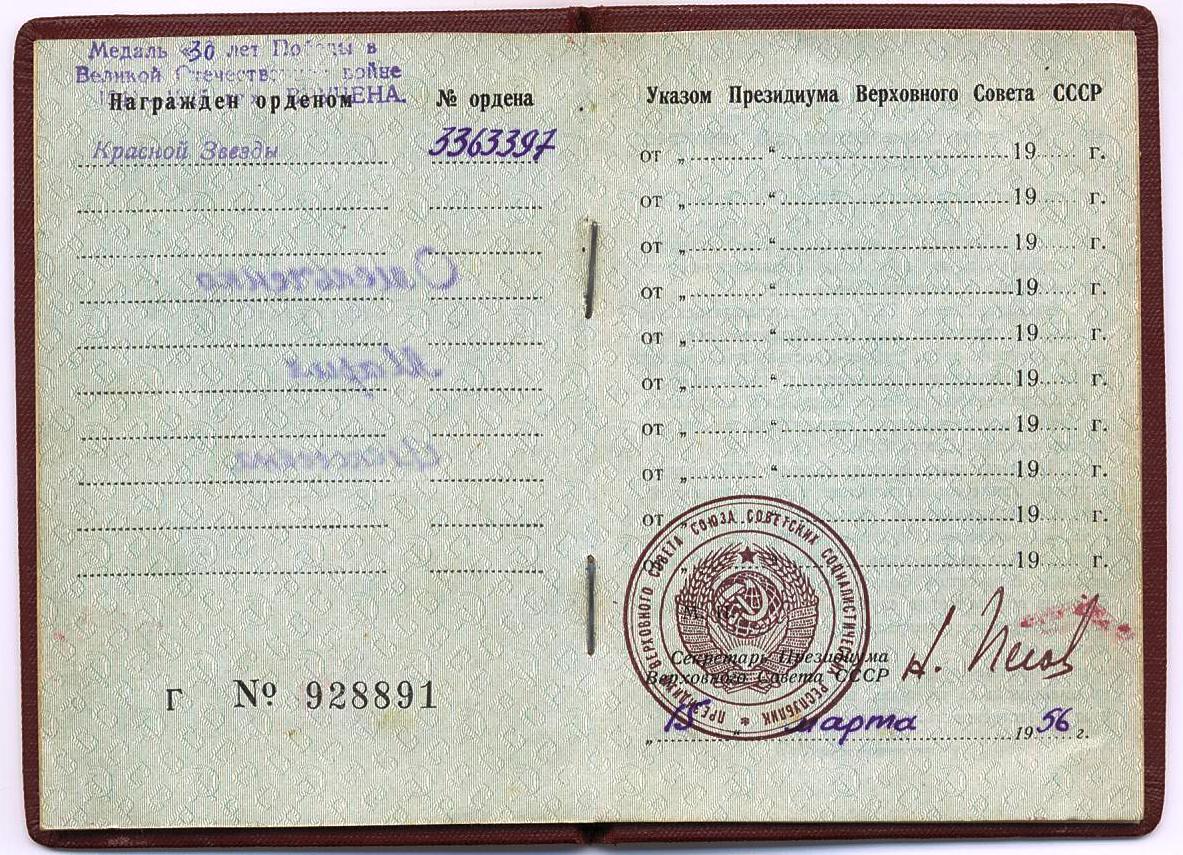 Медаль «30 лет Победы в
Великой Отечественной войне
ВРУЧЕНА.
Награжден орденом № ордена
Красной Звезды 3363397
Г № 928891
Указом Президиума Верховного Совета СССР
от „ “ 19 г.
от „ “ 19 г.
от „ “ 19 г.
от „ “ 19 г.
от „ “ 19 г.
от „ “ 19 г.
от „ “ 19 г.
от „ “ 19 г.
от „ “ 19 г.
„ 19 г.
ПРЕЗИДИУМ ВЕРХОВНОГО СОВЕТА СОЮЗА СОВЕТСКИХ СОЦИАЛИСТИЧЕСКИХ РЕСПУБЛИК
Секретарь Президиума
Верховного Совета СССР
Н. Пегов
„15“ марта 1956 г.